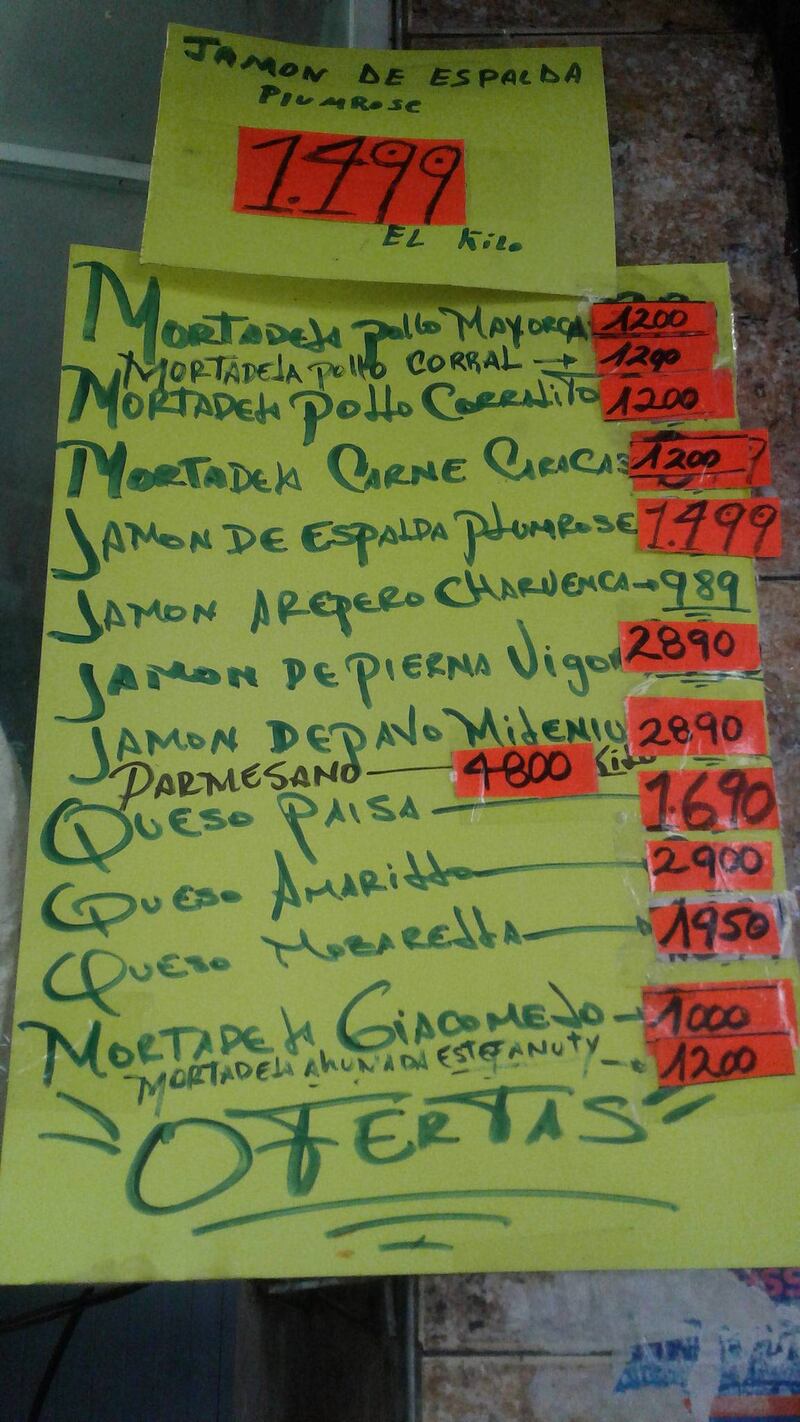 JAMON DE ESPALDA
PLUMROSE
1.499
EL Kilo
MORTADELA POLLO MAYORCA 1200
MORTADELA POLLO CORRAL → 1200
MORTADELA POLLO CORRALITO 1200
MORTADELA CARNE CARACAS 1200
JAMON DE ESPALDA PLUMROSE 1.499
JAMON AREPERO CHARVENCA → 989
JAMON DE PIERNA Vigor 2890
JAMON DE PAVO MILENIU 2890
PARMESANO 4800 Kilo
QUESO PAISA 1.690
QUESO AMARILLO 2900
QUESO MOZARELLA → 1950
MORTADELA GIACOMELO → 1000
MORTADELA AHUMADA ESTEFANUTY → 1200
"OFERTAS"